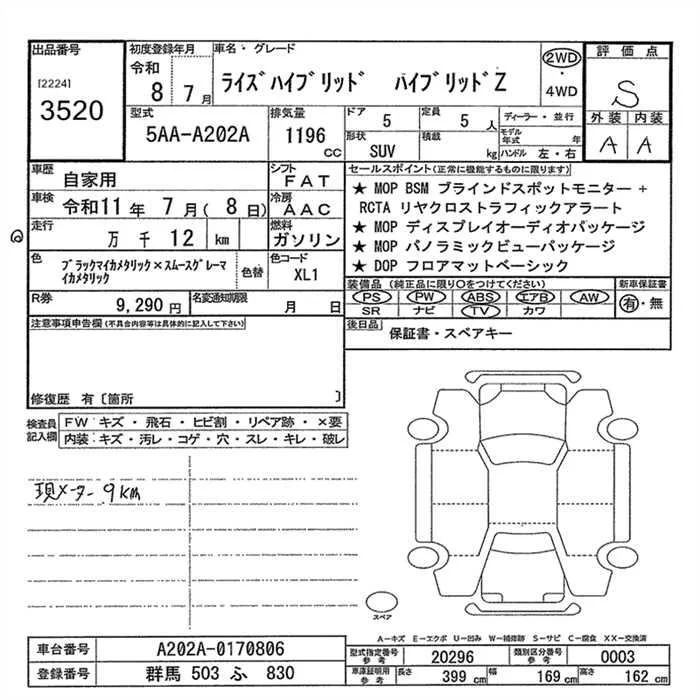 出品番号
[2224]
3520
初度登録年月
令和
8 7月
車名・グレード
ライズハイブリッド ハイブリッドZ
2WD
・
4WD
評価点
S
外装 内装
A A
型式
5AA-A202A
排気量
1196
CC
ドア
5
定員
5 人
形状
SUV
積載
kg
ディーラー・並行
モデル年式 年
ハンドル 左・右
車歴
自家用
シフト
FAT
車検
令和11年 7月( 8日)
冷房
AAC
走行
万 千 12 km
燃料
ガソリン
色
ブラックマイカメタリック×スムースグレーマ
イカメタリック
色替
色コード
XL1
R券
9,290 円
名変通知期限
月 日
セールスポイント(正常に機能するものに限ります)
★ MOP BSM ブラインドスポットモニター +
RCTA リヤクロストラフィックアラート
★ MOP ディスプレイオーディオパッケージ
★ MOP パノラミックビューパッケージ
★ DOP フロアマットベーシック
装備品(純正品に限り○をつけてください)
PS PW ABS エアB AW
SR ナビ TV カワ
新車保証書
有・無
後日品
保証書・スペアキー
注意事項申告欄(不具合内容等は具体的に記入して下さい)
修復歴 有〔箇所 〕
検査員
記入欄
FW キズ・飛石・ヒビ割・リペア跡・×要
内装:キズ・汚レ・コゲ・穴・スレ・キレ・破レ
現メーター 9km
スペア
A-キズ E-エクボ U-凹み W-補修跡 S-サビ C-腐食 XX-交換済
車台番号
A202A-0170806
登録番号
群馬 503 ふ 830
型式指定番号
参考
20296
類別区分番号
参考
0003
車庫証明用
参考
長さ
399 cm
幅
169 cm
高さ
162 cm